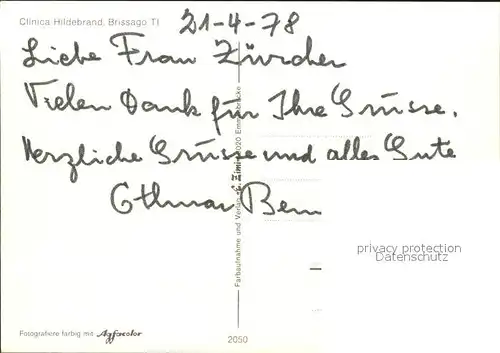 Clinica Hildebrand, Brissago TI
21-4-78
Liebe Frau Zürcher
Vielen Dank für Ihre Grüsse.
Herzliche Grüsse und alles Gute
Othmar
Farbaufnahme und Verlag
6020 Emmenbrücke
privacy protection
Datenschutz
Fotografiere farbig mit Agfacolor
2050